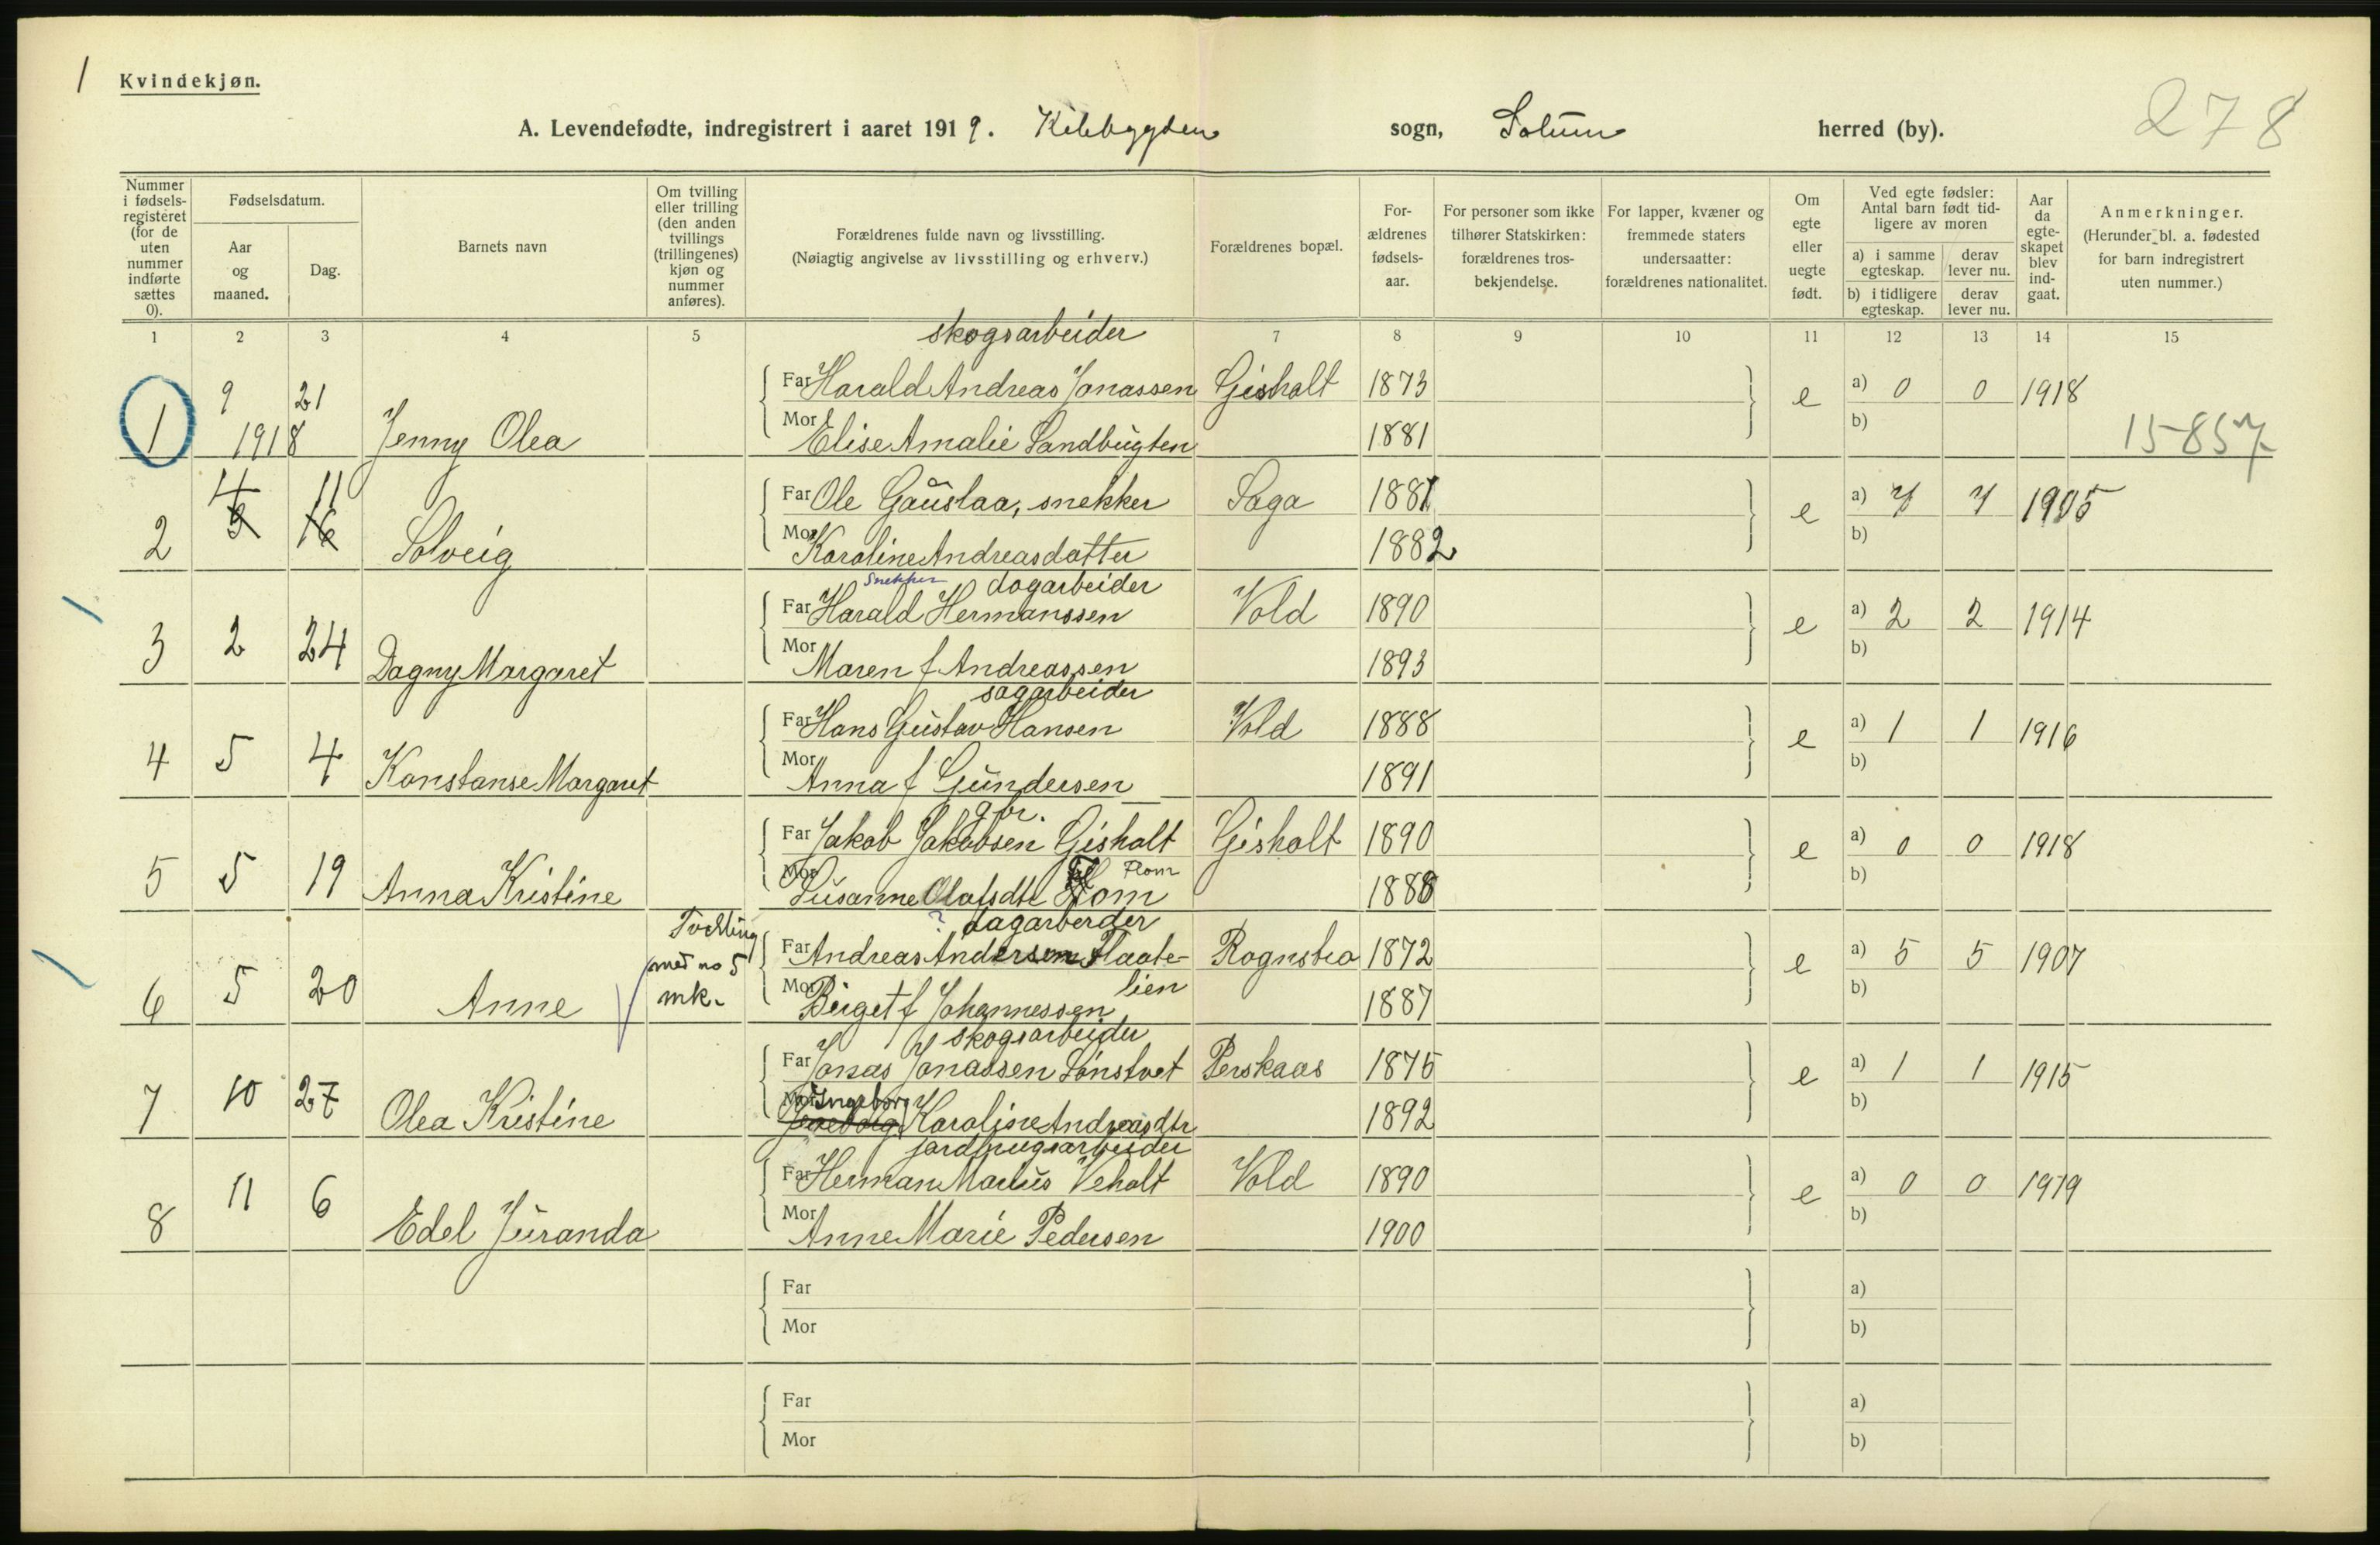 1
Kvindekjøn.
A. Levendefødte, indregistrert i aaret 1919. Kilebygden sogn, Solum herred (by).
278
Nummer i fødsels-registeret (for de uten nummer indførte sættes 0).
Fødselsdatum.
Aar og maaned.
Dag.
Barnets navn
Om tvilling eller trilling (den anden tvillings (trillingenes) kjøn og nummer anføres).
Forældrenes fulde navn og livsstilling.
(Nøiagtig angivelse av livsstilling og erhverv.)
Forældrenes bopæl.
For-ældrenes fødsels-aar.
For personer som ikke tilhører Statskirken: forældrenes tros-bekjendelse.
For lapper, kvæner og fremmede staters undersaatter: forældrenes nationalitet.
Om egte eller uegte født.
Ved egte fødsler: Antal barn født tid-ligere av moren
a) i samme egteskap.
derav lever nu.
b) i tidligere egteskap.
derav lever nu.
Aar da egte-skapet blev ind-gaat.
Anmerkninger.
(Herunder bl. a. fødested for barn indregistrert uten nummer.)
1 2 3 4 5 7 8 9 10 11 12 13 14 15
skogsarbeider
9 21 Far Harald Andreas Jonassen Gisholt 1873 e a) 0 0 1918
1 1918 Jenny Olea Mor Elise Amalie Sandbugten 1881 b)
15-857
4 11 Far Ole Gauslaa, snekker Saga 1881 e a) 7 7 1905
2 3 16 Solveig Mor Karoline Andreasdatter 1882 b)
snekker dagarbeider
Far Harald Hermanssen Vold 1890 e a) 2 2 1914
3 2 24 Dagny Margaret Mor Maren f Andreassen 1893 b)
sagarbeider
Far Hans Gustav Hansen Vold 1888 e a) 1 1 1916
4 5 4 Konstanse Margaret Mor Anna f Gundersen 1891 b)
gbr.
Far Jakob Jakobsen Gisholt Gisholt 1890 e a) 0 0 1918
Flom
5 5 19 Anna Kristine Mor Susanne Olafsdtr Flom 1888 b)
? dagarbeider
Tvilling med no 5 mk.
Far Andreas Andersen Flaate- Rognstra 1872 e a) 5 5 1907
lien
6 5 20 Anne Mor Birget f Johannessen 1887 b)
skogsarbeider
Far Jonas Jonassen Lønstvet Perskaas 1875 e a) 1 1 1915
Ingeborg
7 10 27 Olea Kristine Mor Karoline Andreasdtr 1892 b)
jordbrugsarbeider
Far Herman Marius Veholt Vold 1890 e a) 0 0 1919
8 11 6 Edel Juranda Mor Anne Marie Pedersen 1900 b)
Far a)
Mor b)
Far a)
Mor b)